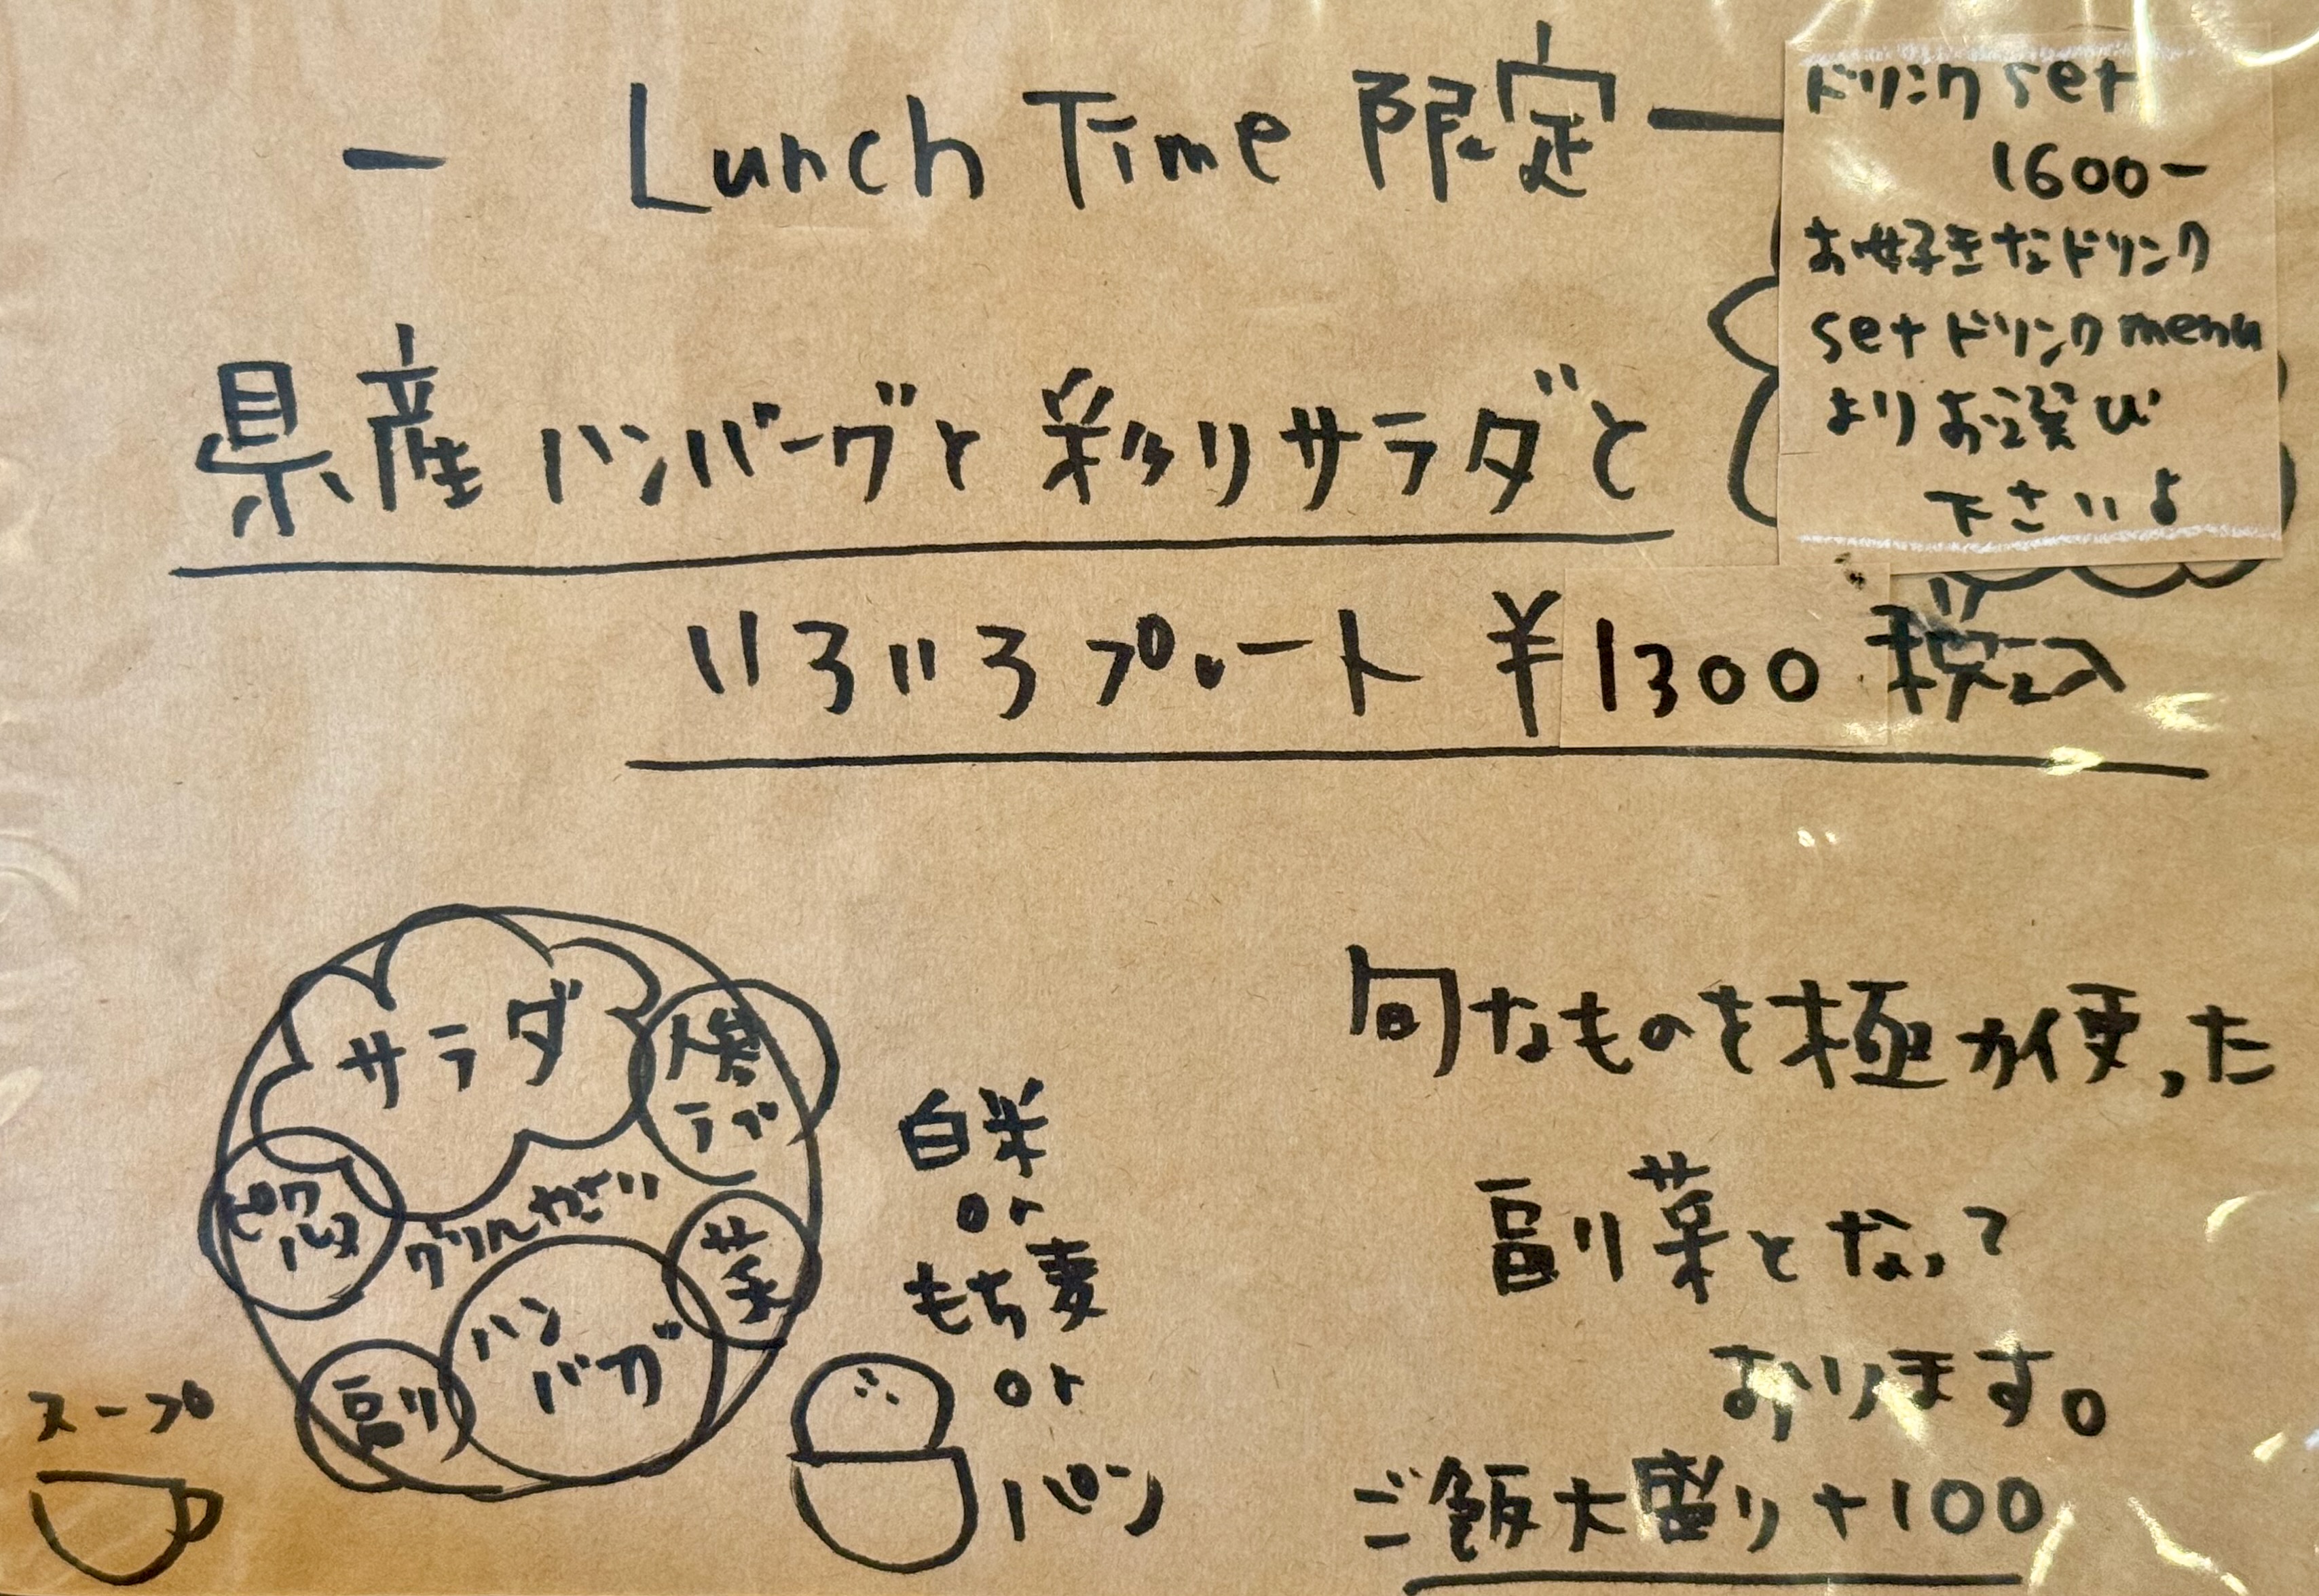 — Lunch Time 限定 —
ドリンク set
1600-
お好きなドリンク
set ドリンク menu
よりお選び
下さいよ
県産ハンバーグと彩りサラダと
いろいろプレート ¥1300 税込
サラダ
ラザ
ピクルス
グリルやさい
菜
ハン
バーグ
副
スープ
白米
or
もち麦
or
パン
旬なものを極力使った
副菜となって
おります。
ご飯大盛り+100